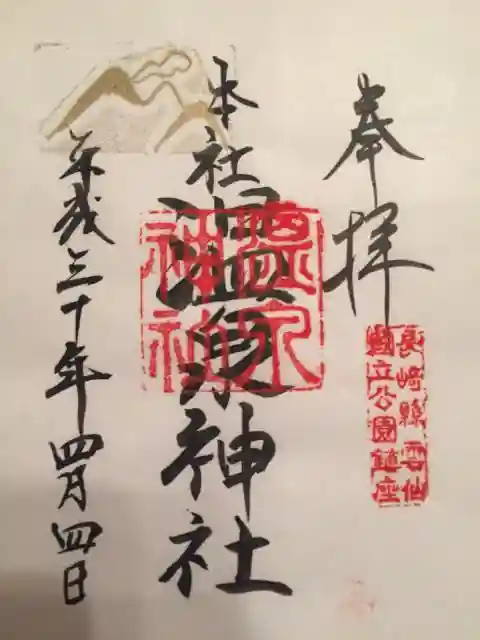 奉拝
長崎縣雲仙
國立公園鎮座
本社
温泉神社
温泉
神社
平成三十年四月四日